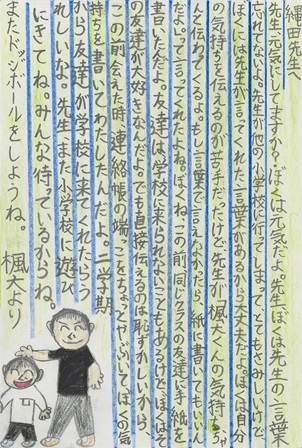 縄田先生
先生元気にしてますか?ぼくは元気だよ。先生ぼくは先生の言葉
忘れてないよ。先生が他の小学校に行ってしまってとてもさみしいけど
ぼくには先生が言ってくれた言葉があるから大丈夫だよ。ぼくは自分
の気持ちを伝えるのが苦手だったけど先生が「楓大くんの気持ちちゃ
んと伝わてくるよ。もし言葉で言えなかったら、紙に書いてもいいん
だよ。」て言ってくれたよね。ぼくね、この前同じクラスの友達に手紙を
書いたんだよ。友達は学校に来られないこともあるけどぼくはそ
の友達が大好きなんだよ。でも直接伝えるのは恥ずかしいから、
この前会えた時連絡帳の端っこをちょっとやぶいてぼくの気
持ちを書いてわたしたんだよ。二学期
から友達が学校に来てくれたらう
れしいな。先生、また小学校に遊び
にきてね。みんな待っているからね。
またドッジボールをしようね。 楓大より